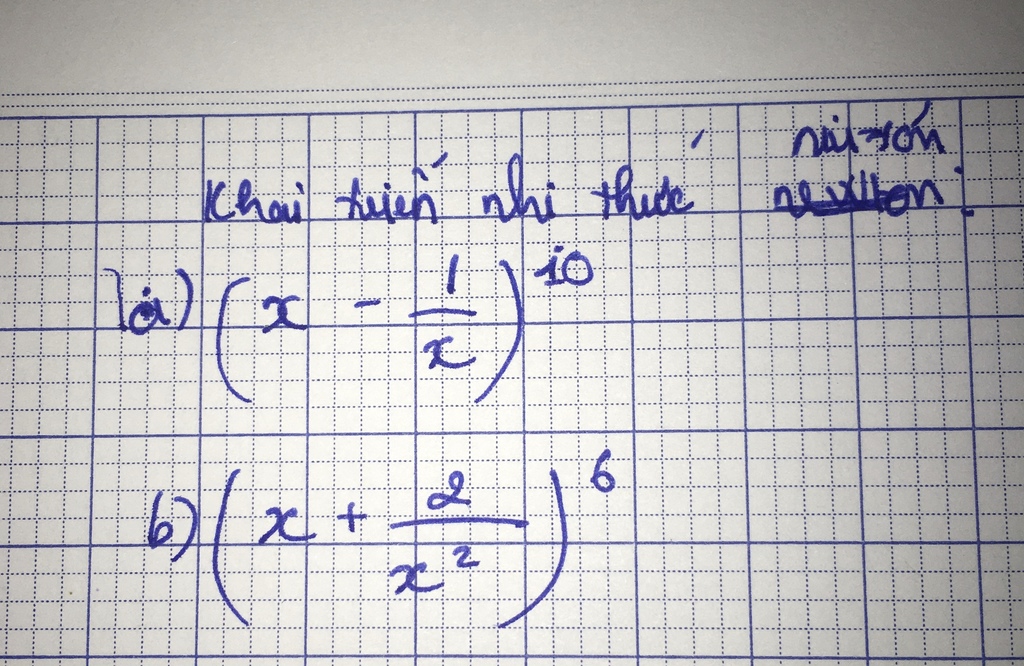 Khai triển nhị thức nui-rơn newton:
a) (x - 1/x)^10
b) (x + 2/x^2)^6